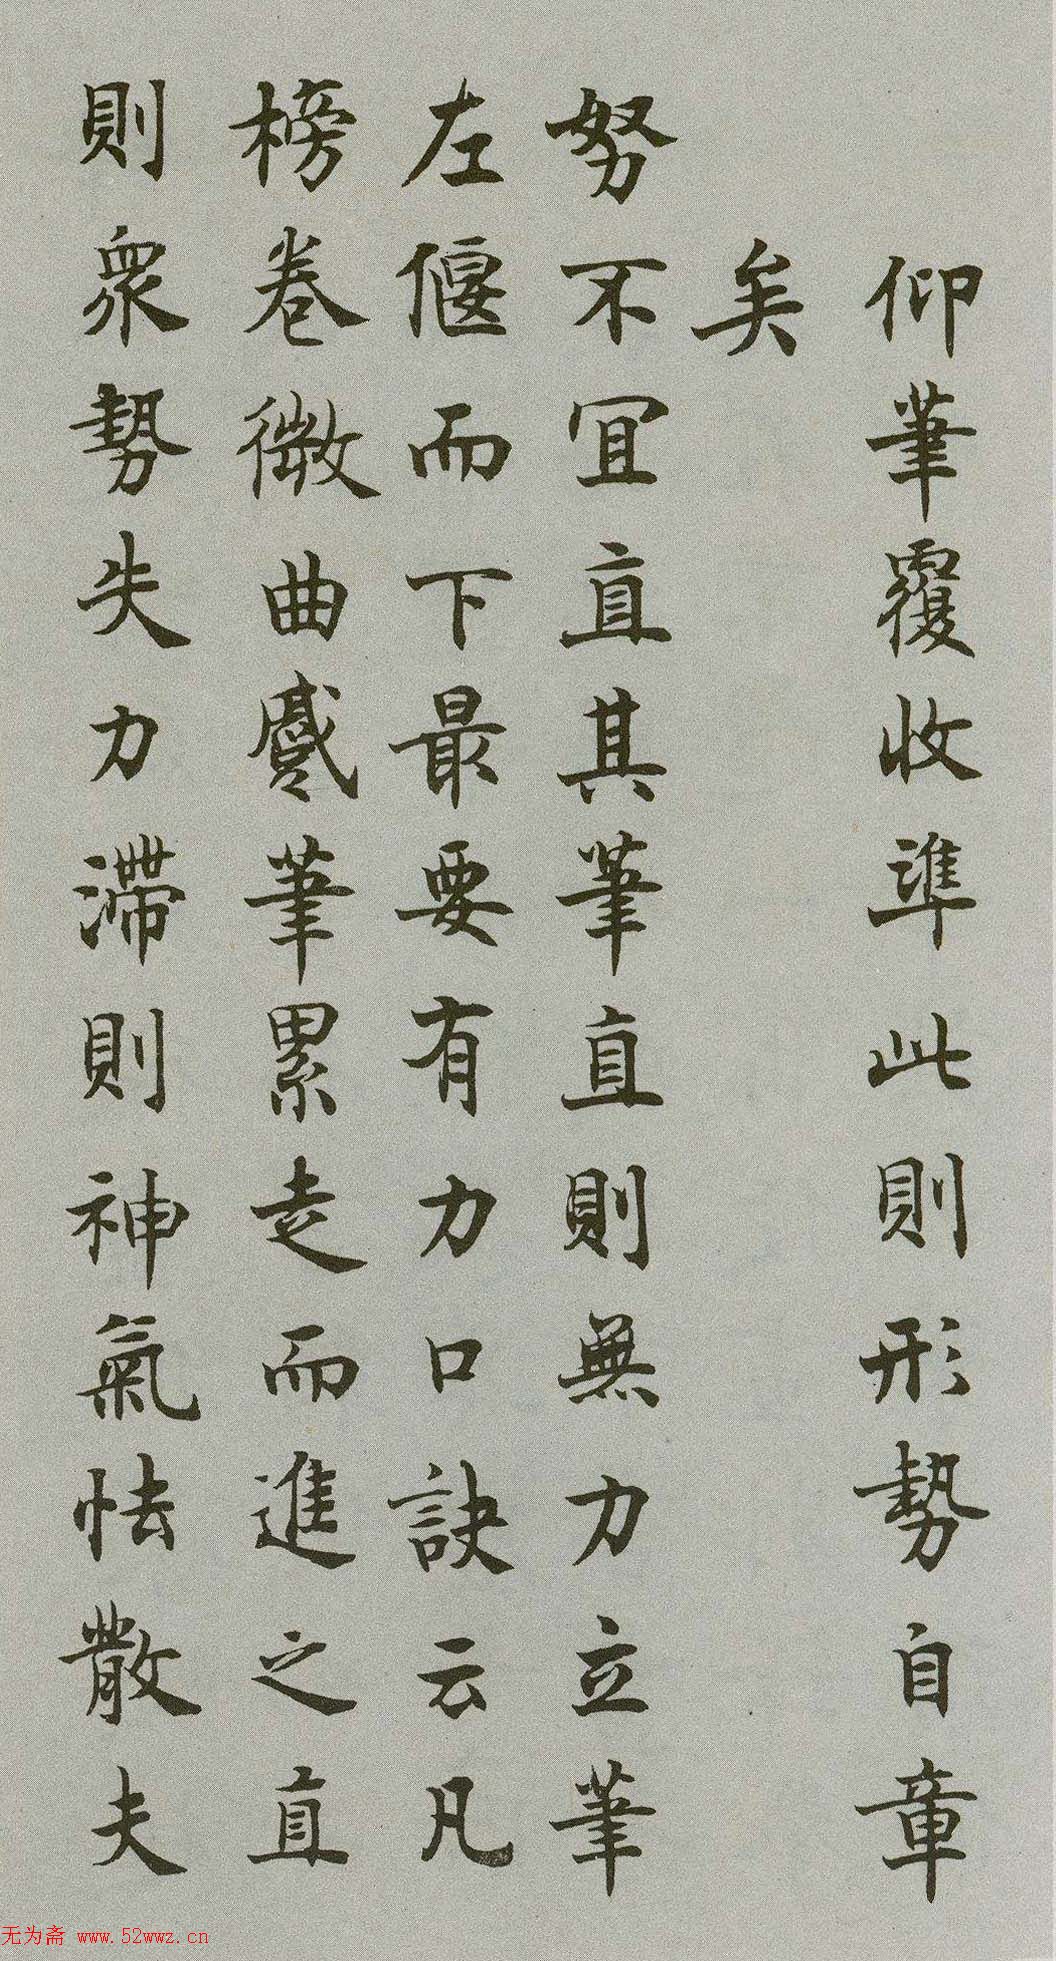 仰筆覆收準此則形勢自章
矣
努不宜直其筆直則無力立筆
左偃而下最要有力口訣云凡
榜卷微曲蹙筆累走而進之直
則衆勢失力滯則神氣怯散夫
无为斋 www.52wwz.cn